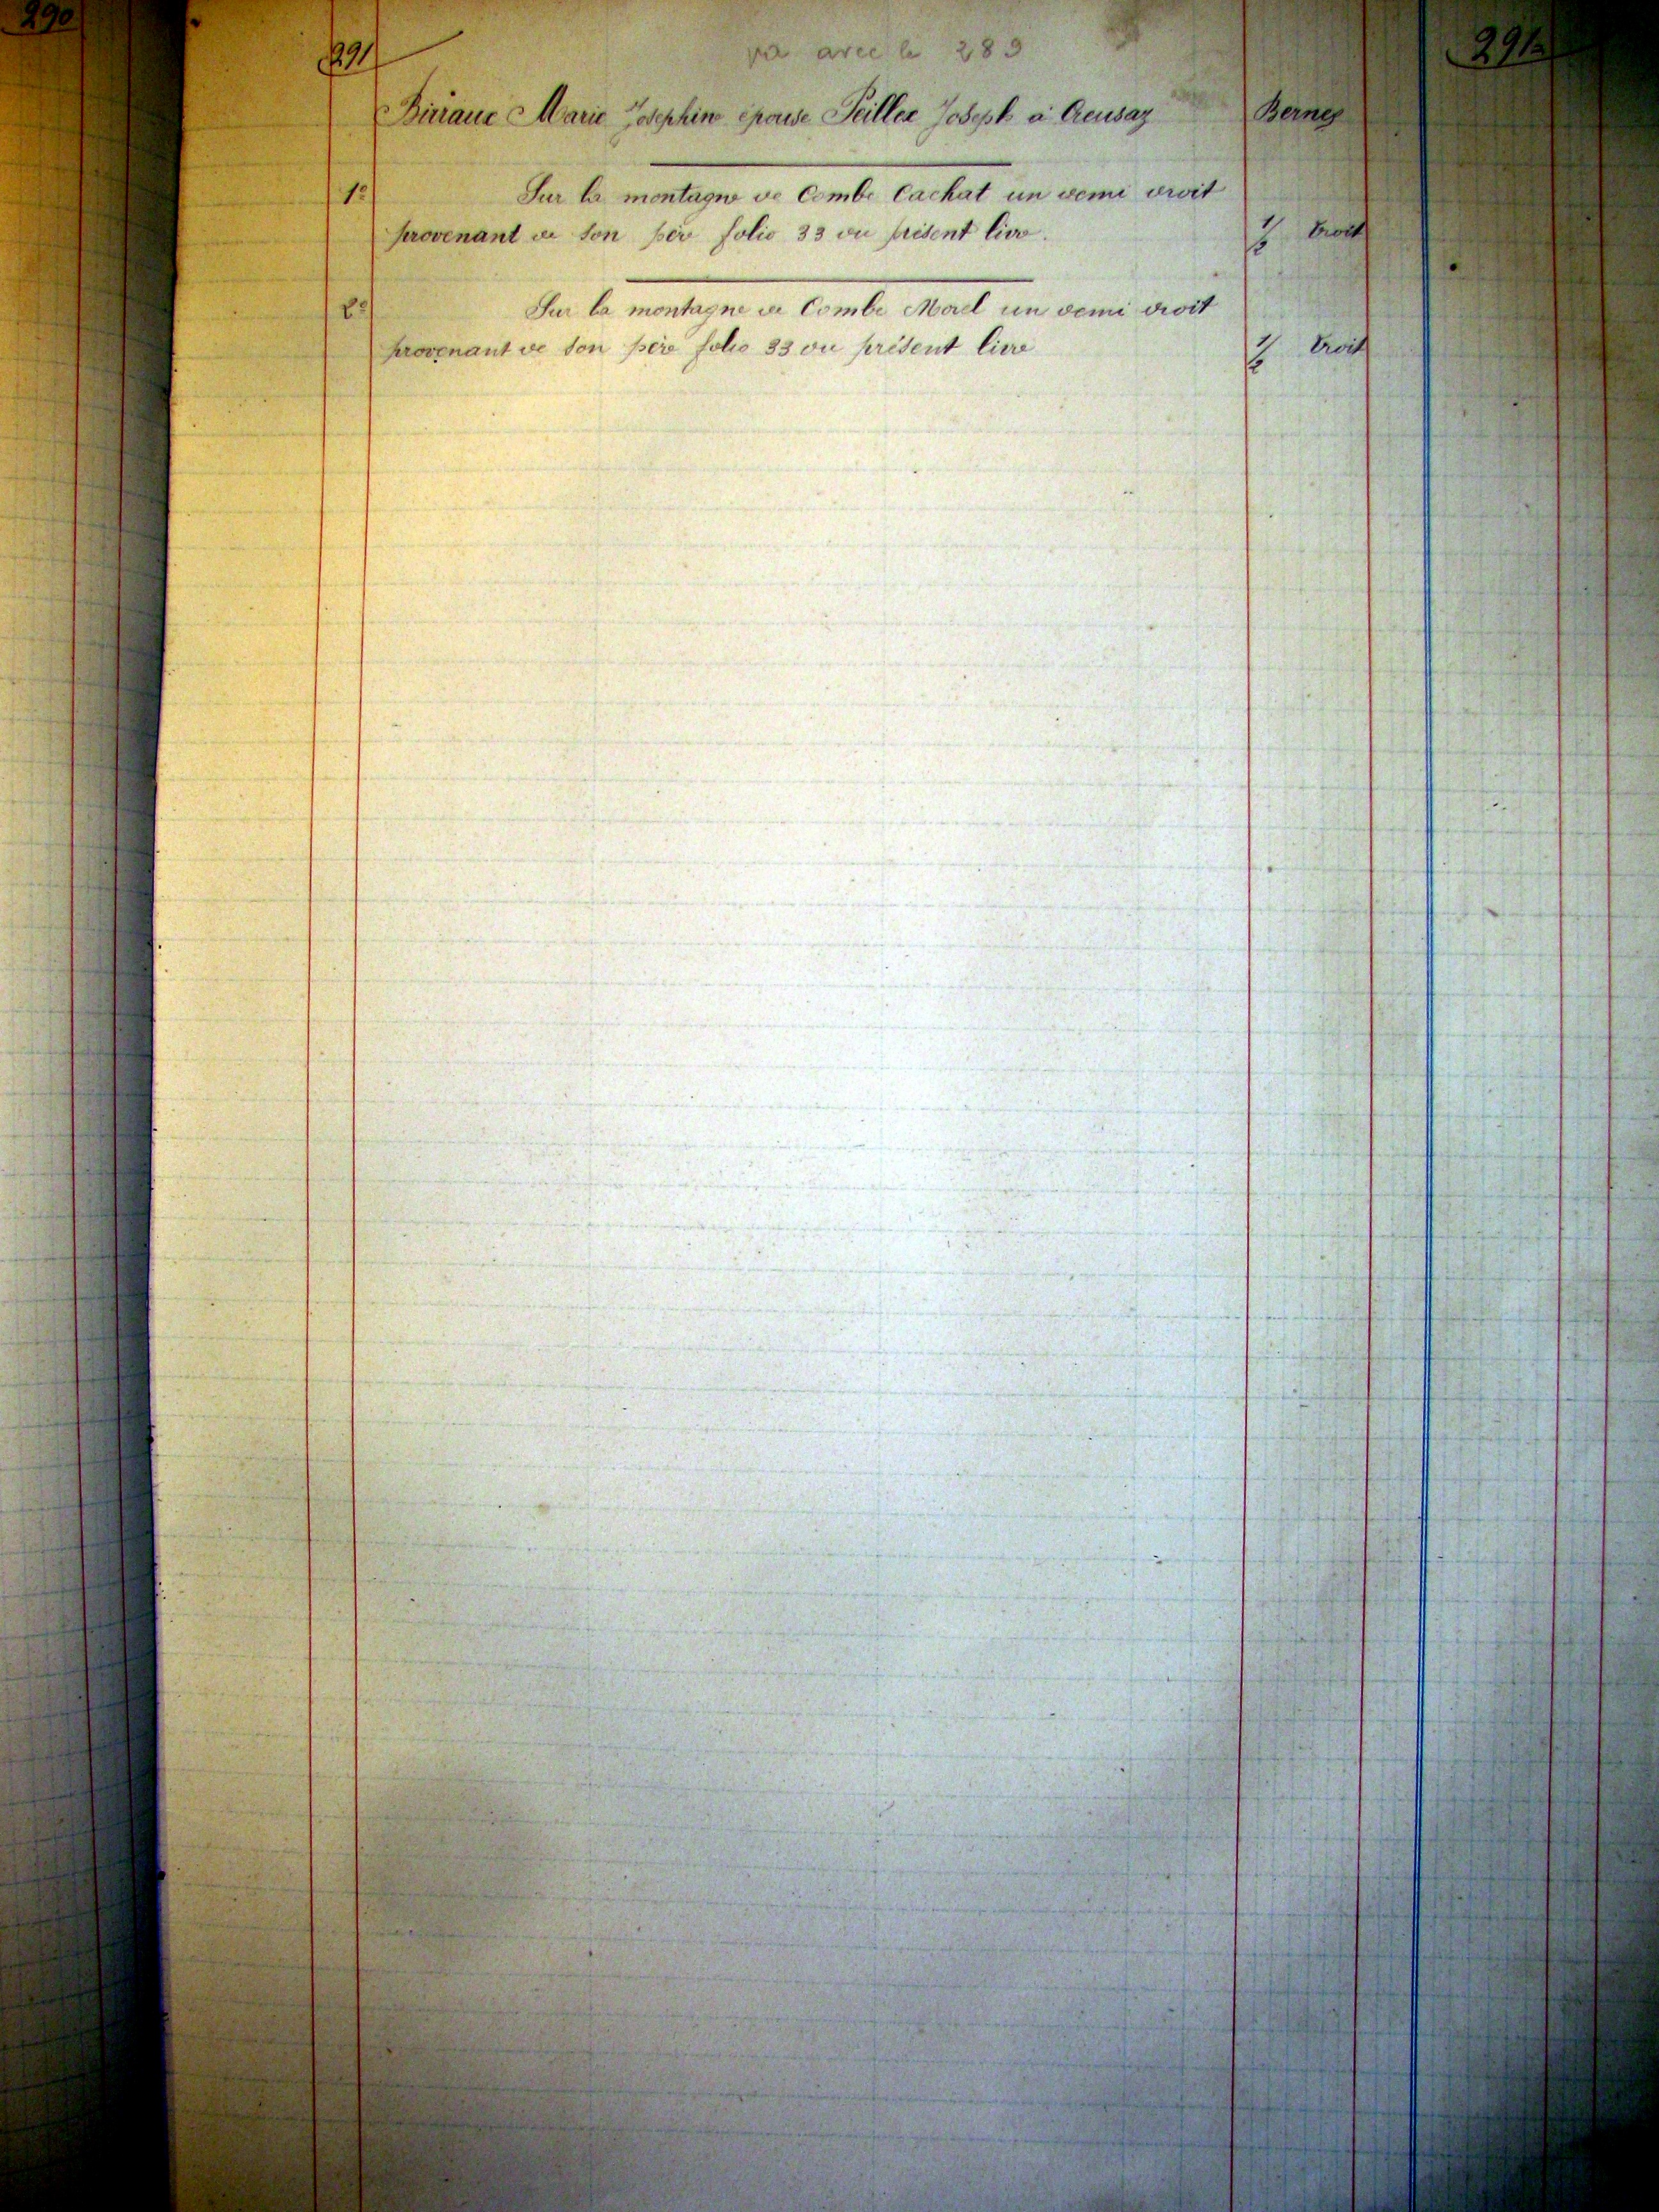 290
291
va avec le 289
291a
Birraux Marie Josephine épouse Peillex Joseph à Creusaz
Bernex
1º
Sur la montagne de Combe Cachat un demi droit
provenant de son père folio 33 du présent livre.
1/2 Droit
2º
Sur la montagne de Combe Morel un demi droit
provenant de son père folio 33 du présent livre
1/2 Droit